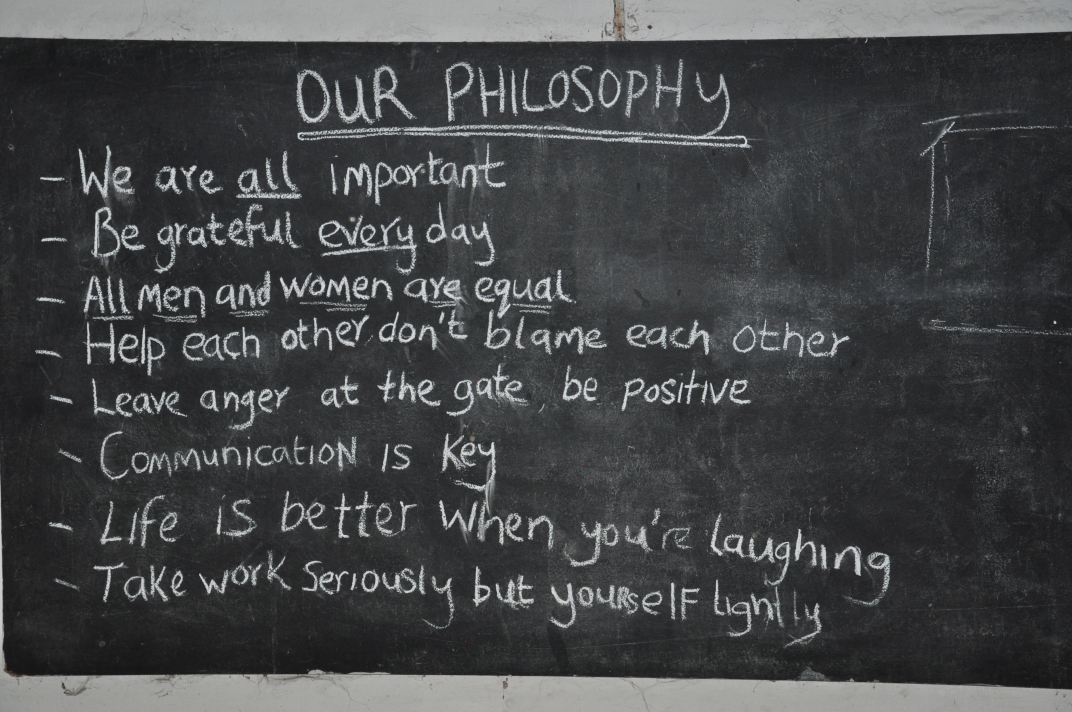 OUR PHILOSOPHY
- We are all important
- Be grateful every day
- All men and women are equal
- Help each other, don't blame each other
- Leave anger at the gate, be positive
- Communication is key
- Life is better when you're laughing
- Take work seriously but yourself lightly